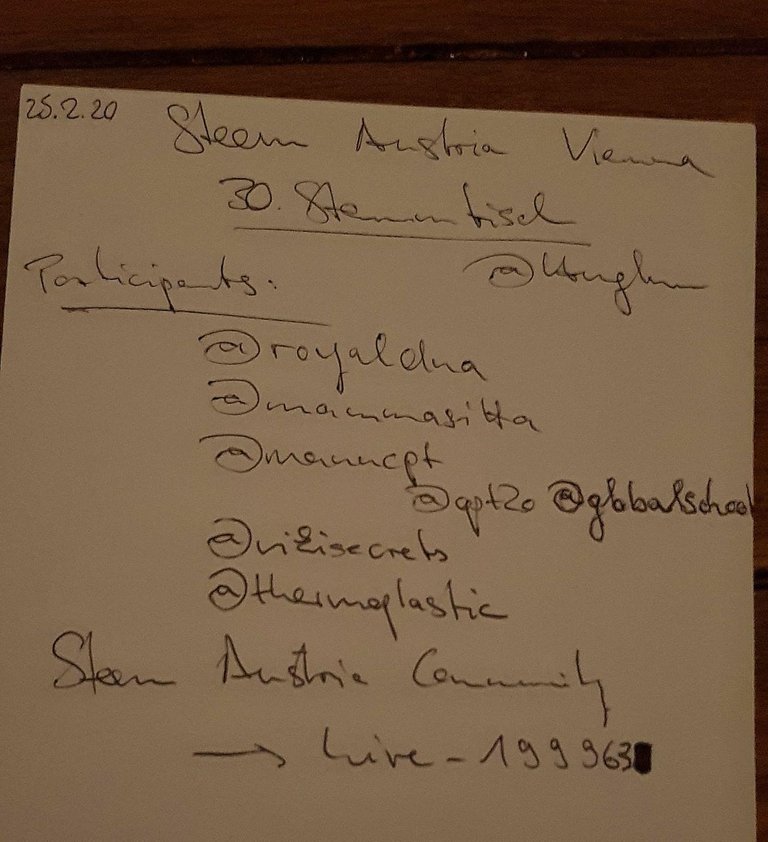 25.2.20 Steem Austria Vienna
30. Stemmtisch
Participants:
@royaldna
@mammasitta
@manncpt
@apt20 @globalschool
@vikisecrets
@thermoplastic
Steem Austria Community
→ hive-199963